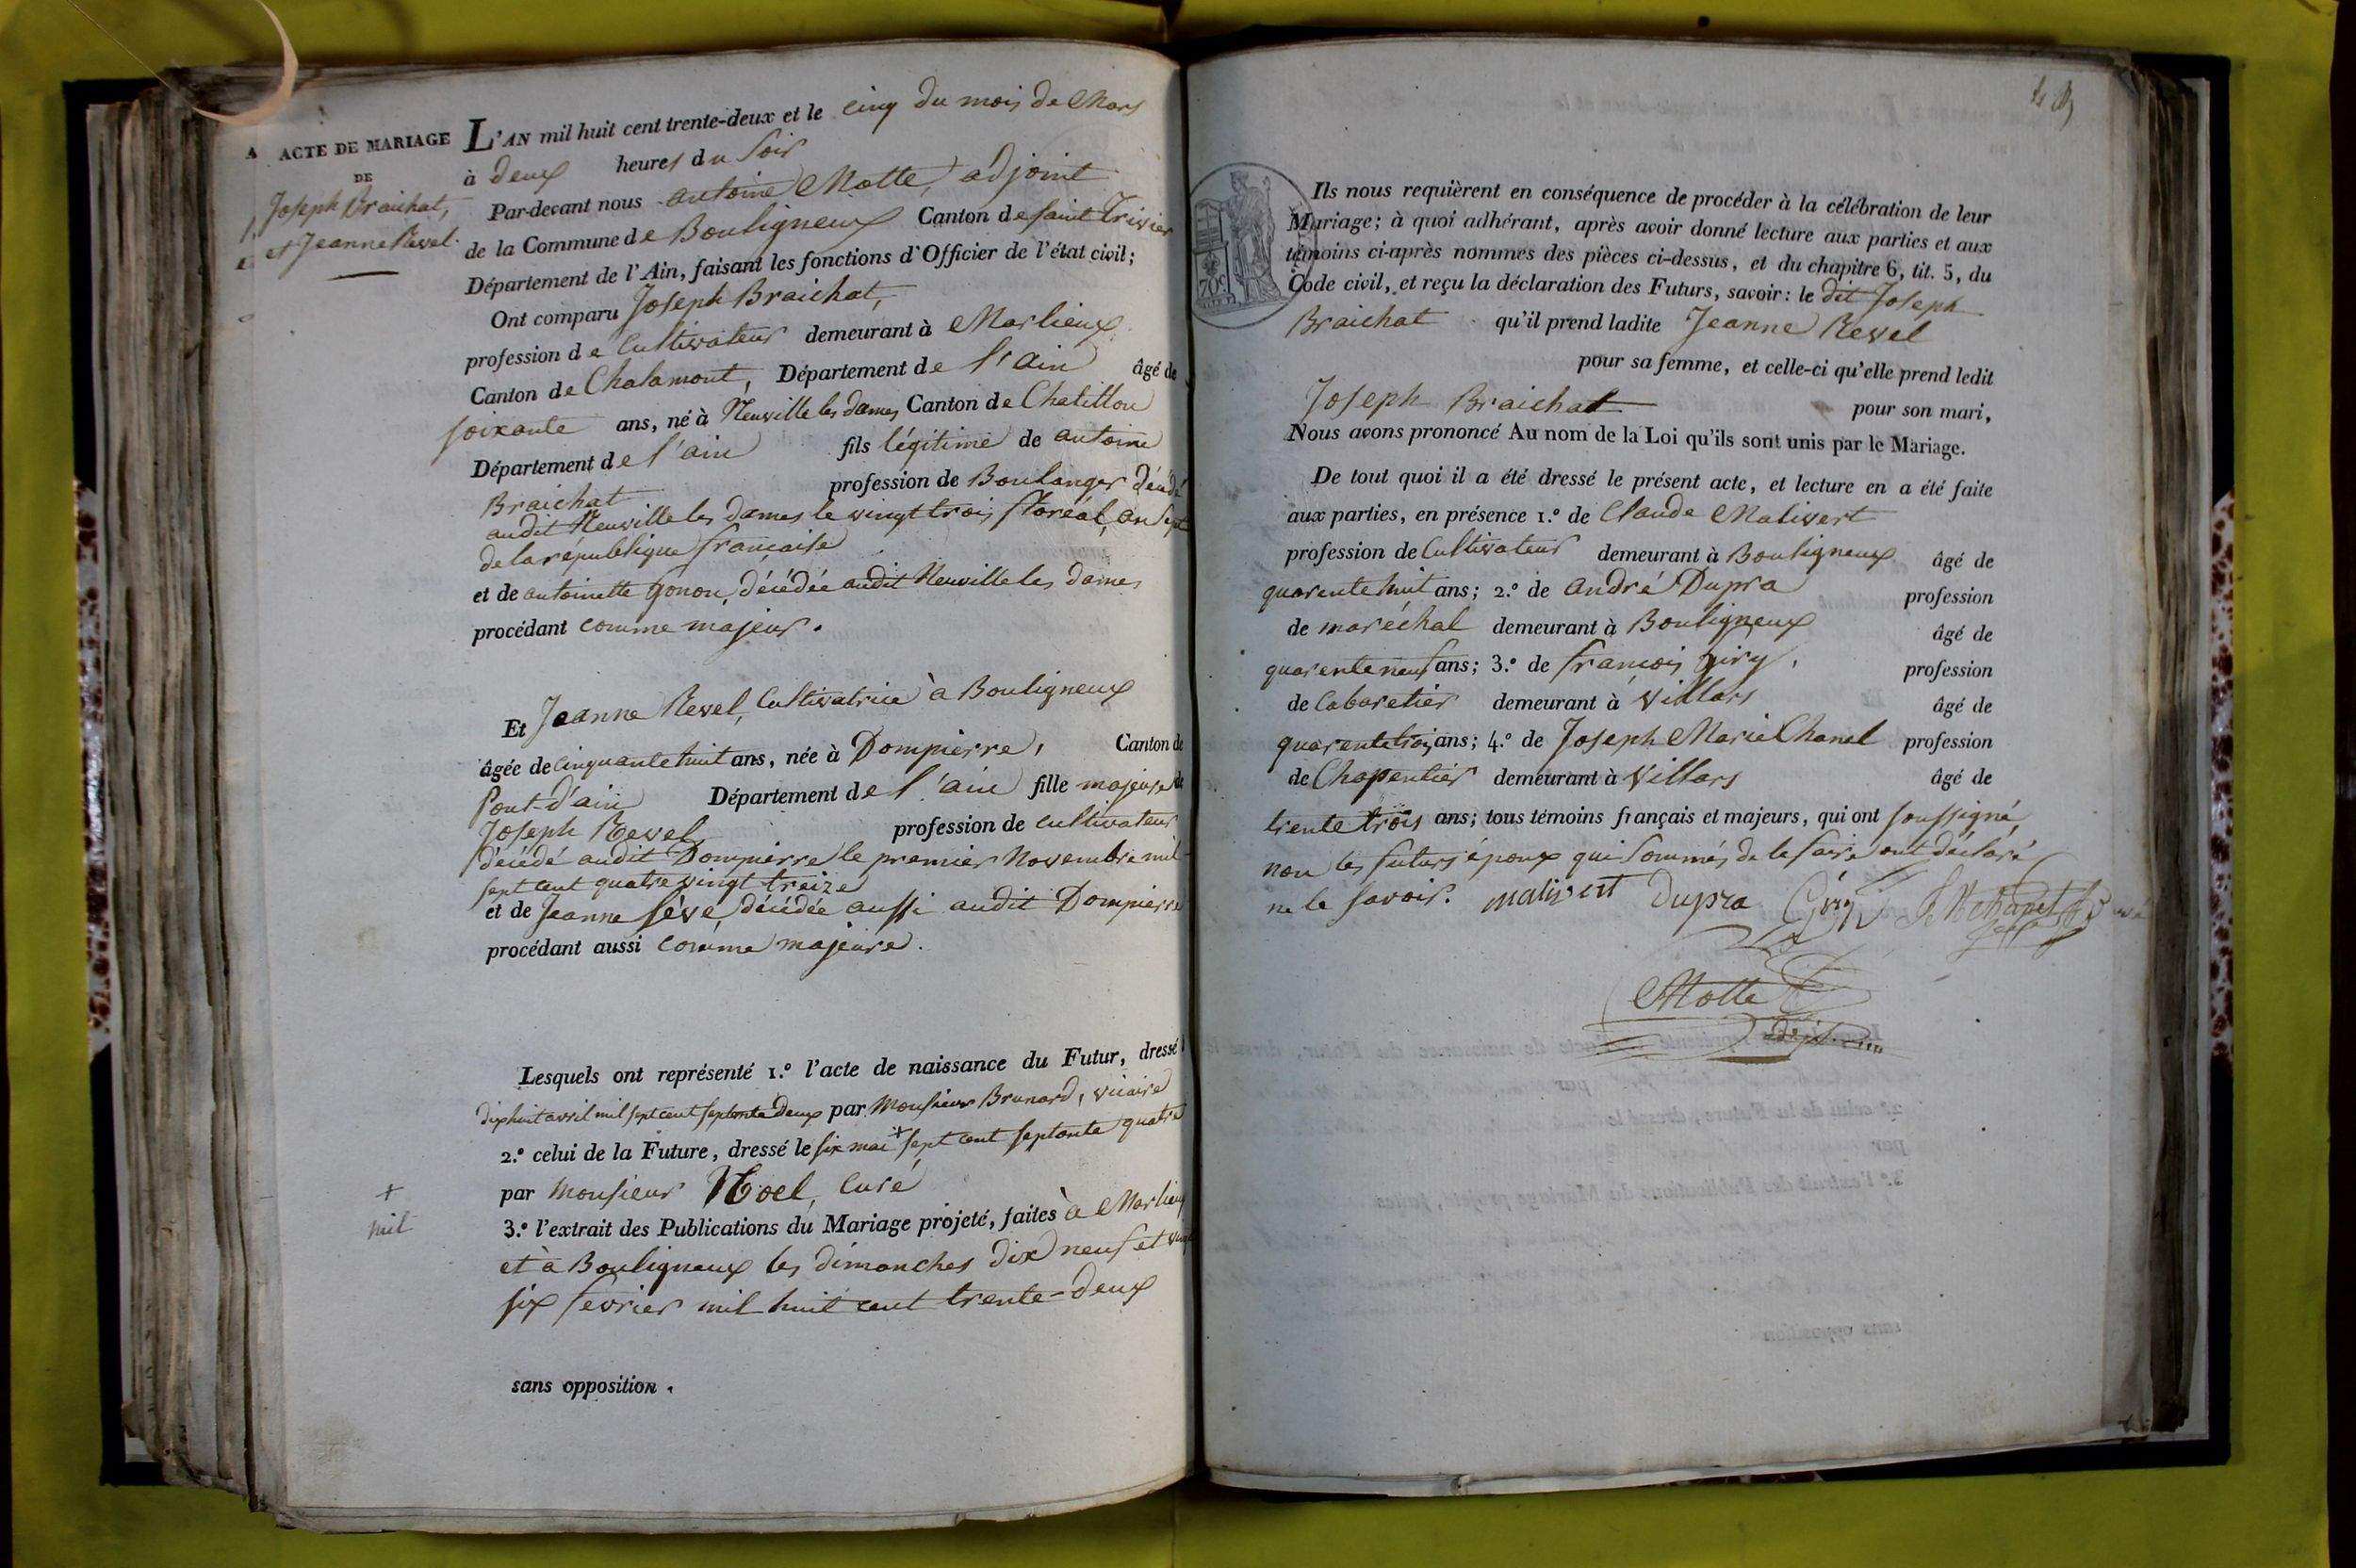 ACTE DE MARIAGE
DE
Joseph Braichat,
et Jeanne Revel.
L'AN mil huit cent trente-deux et le cinq du mois de Mars
à deux heures du soir
Par-devant nous antoine Motte, adjoint
de la Commune de Bouligneux Canton de saint Trivier
Département de l'Ain, faisant les fonctions d'Officier de l'état civil;
Ont comparu Joseph Braichat,
profession de Cultivateur demeurant à Marlieux
Canton de Chalamont, Département de l'ain âgé de
soixante ans, né à Neuville les dames Canton de Chatillon
Département de l'ain fils légitime de antoine
Braichat profession de Boulanger décédé
audit Neuville les dames le vingt trois floréal, an sept
de la république française
et de antoinette Gonon, décédée audit Neuville les dames
procédant comme majeur.
Et Jeanne Revel, Cultivatrice à Bouligneux
âgée de cinquante huit ans, née à Dompierre, Canton de
Pont-d'ain Département de l'ain fille majeure de
Joseph Revel profession de cultivateur
décédé audit Dompierre le premier Novembre mil
sept cent quatre vingt treize
et de Jeanne Sève décédée aussi audit Dompierre
procédant aussi comme majeure.
Lesquels ont représenté 1.º l'acte de naissance du Futur, dressé
dixhuit avril mil sept cent septante deux par Monsieur Brunard, vicaire
2.º celui de la Future, dressé le six mai + sept cent septante quatre
par Monsieur Noel, Curé
+
mil
3.º l'extrait des Publications du Mariage projeté, faites à Marlieux
et à Bouligneux les dimanches dix neuf et vingt
six février mil huit cent trente-deux
sans opposition.
Ils nous requièrent en conséquence de procéder à la célébration de leur
Mariage; à quoi adhérant, après avoir donné lecture aux parties et aux
témoins ci-après nommés des pièces ci-dessus, et du chapitre 6, tit. 5, du
Code civil, et reçu la déclaration des Futurs, savoir: le dit Joseph
Braichat qu'il prend ladite Jeanne Revel
pour sa femme, et celle-ci qu'elle prend ledit
Joseph Braichat pour son mari,
Nous avons prononcé Au nom de la Loi qu'ils sont unis par le Mariage.
De tout quoi il a été dressé le présent acte, et lecture en a été faite
aux parties, en présence 1.º de Claude Malivert
profession de Cultivateur demeurant à Bouligneux âgé de
quarente huit ans; 2.º de andré Dupra profession
de maréchal demeurant à Bouligneux âgé de
quarente neuf ans; 3.º de françois giry, profession
de Cabaretier demeurant à Villars âgé de
quarente trois ans; 4.º de Joseph Marie Chanel profession
de Chapentier demeurant à Villars âgé de
trente trois ans; tous témoins français et majeurs, qui ont soussigné,
non les futurs époux qui sommés de le faire ont déclaré
ne le savoir. malivert Dupra Giry
Motte
70c